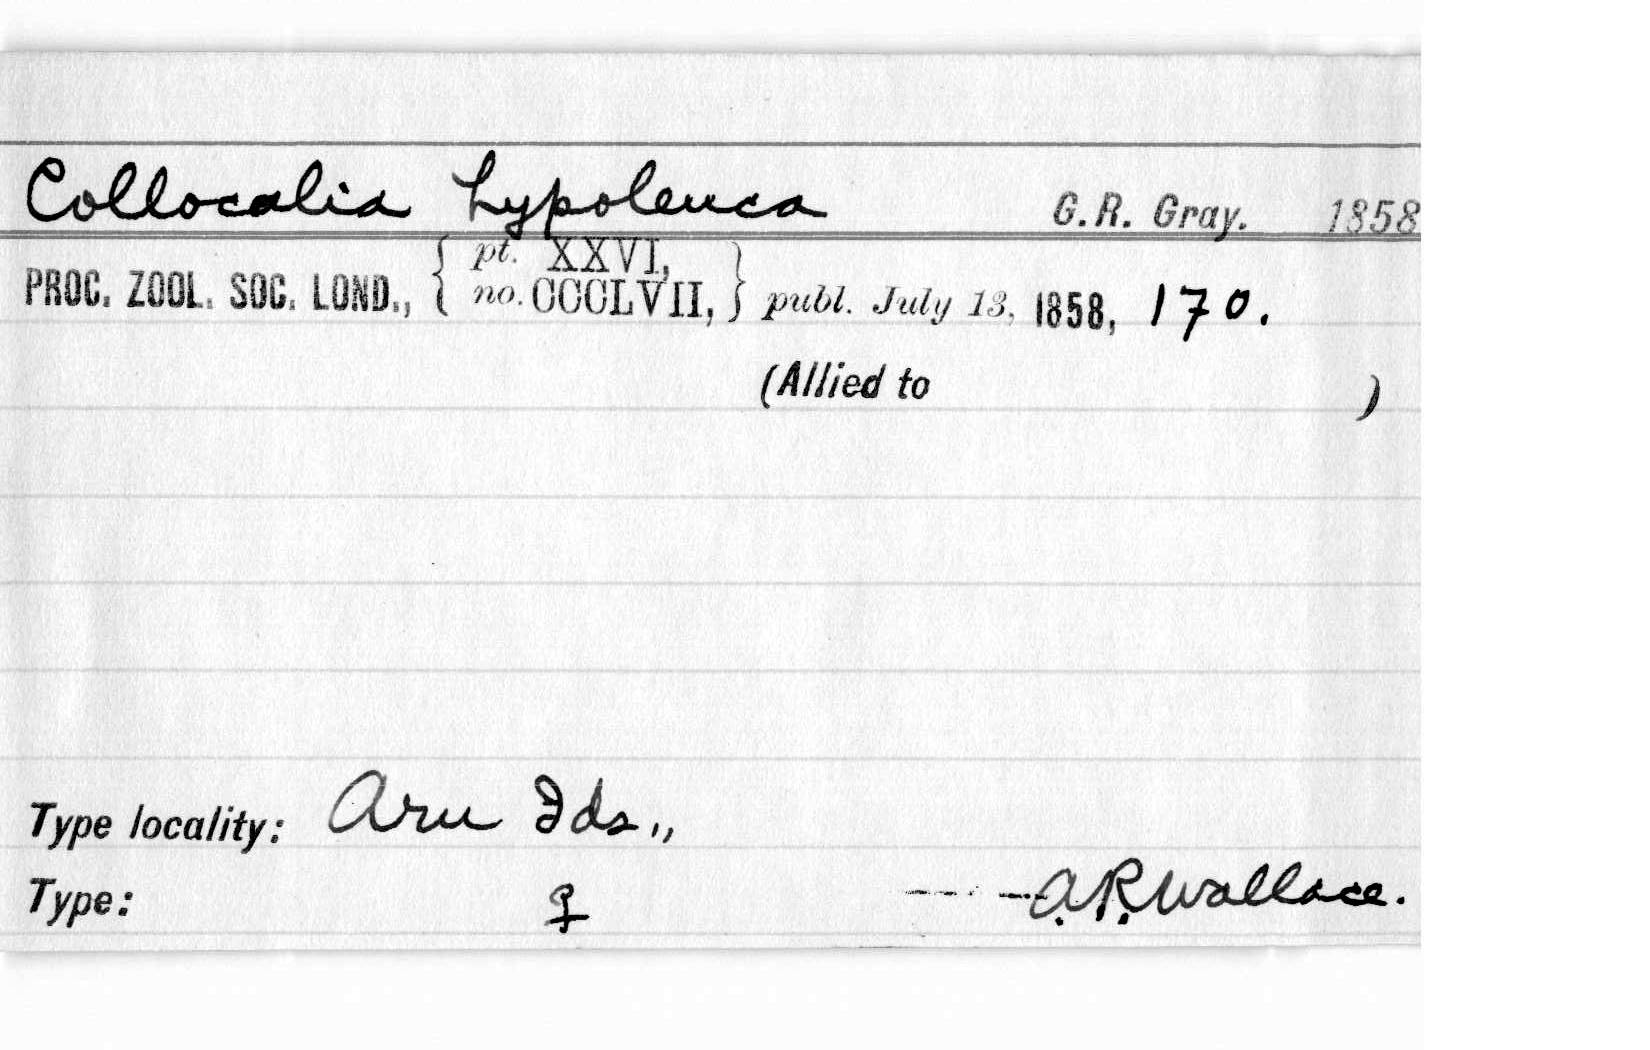 Collocalia hypoleuca G.R. Gray. 1858
PROC. ZOOL. SOC. LOND., { pt. XXVI, no. CCCLVII, } publ. July 13, 1858, 170.
(Allied to )
Type locality: Aru Ids.,,
Type: ♀ A.R. Wallace.